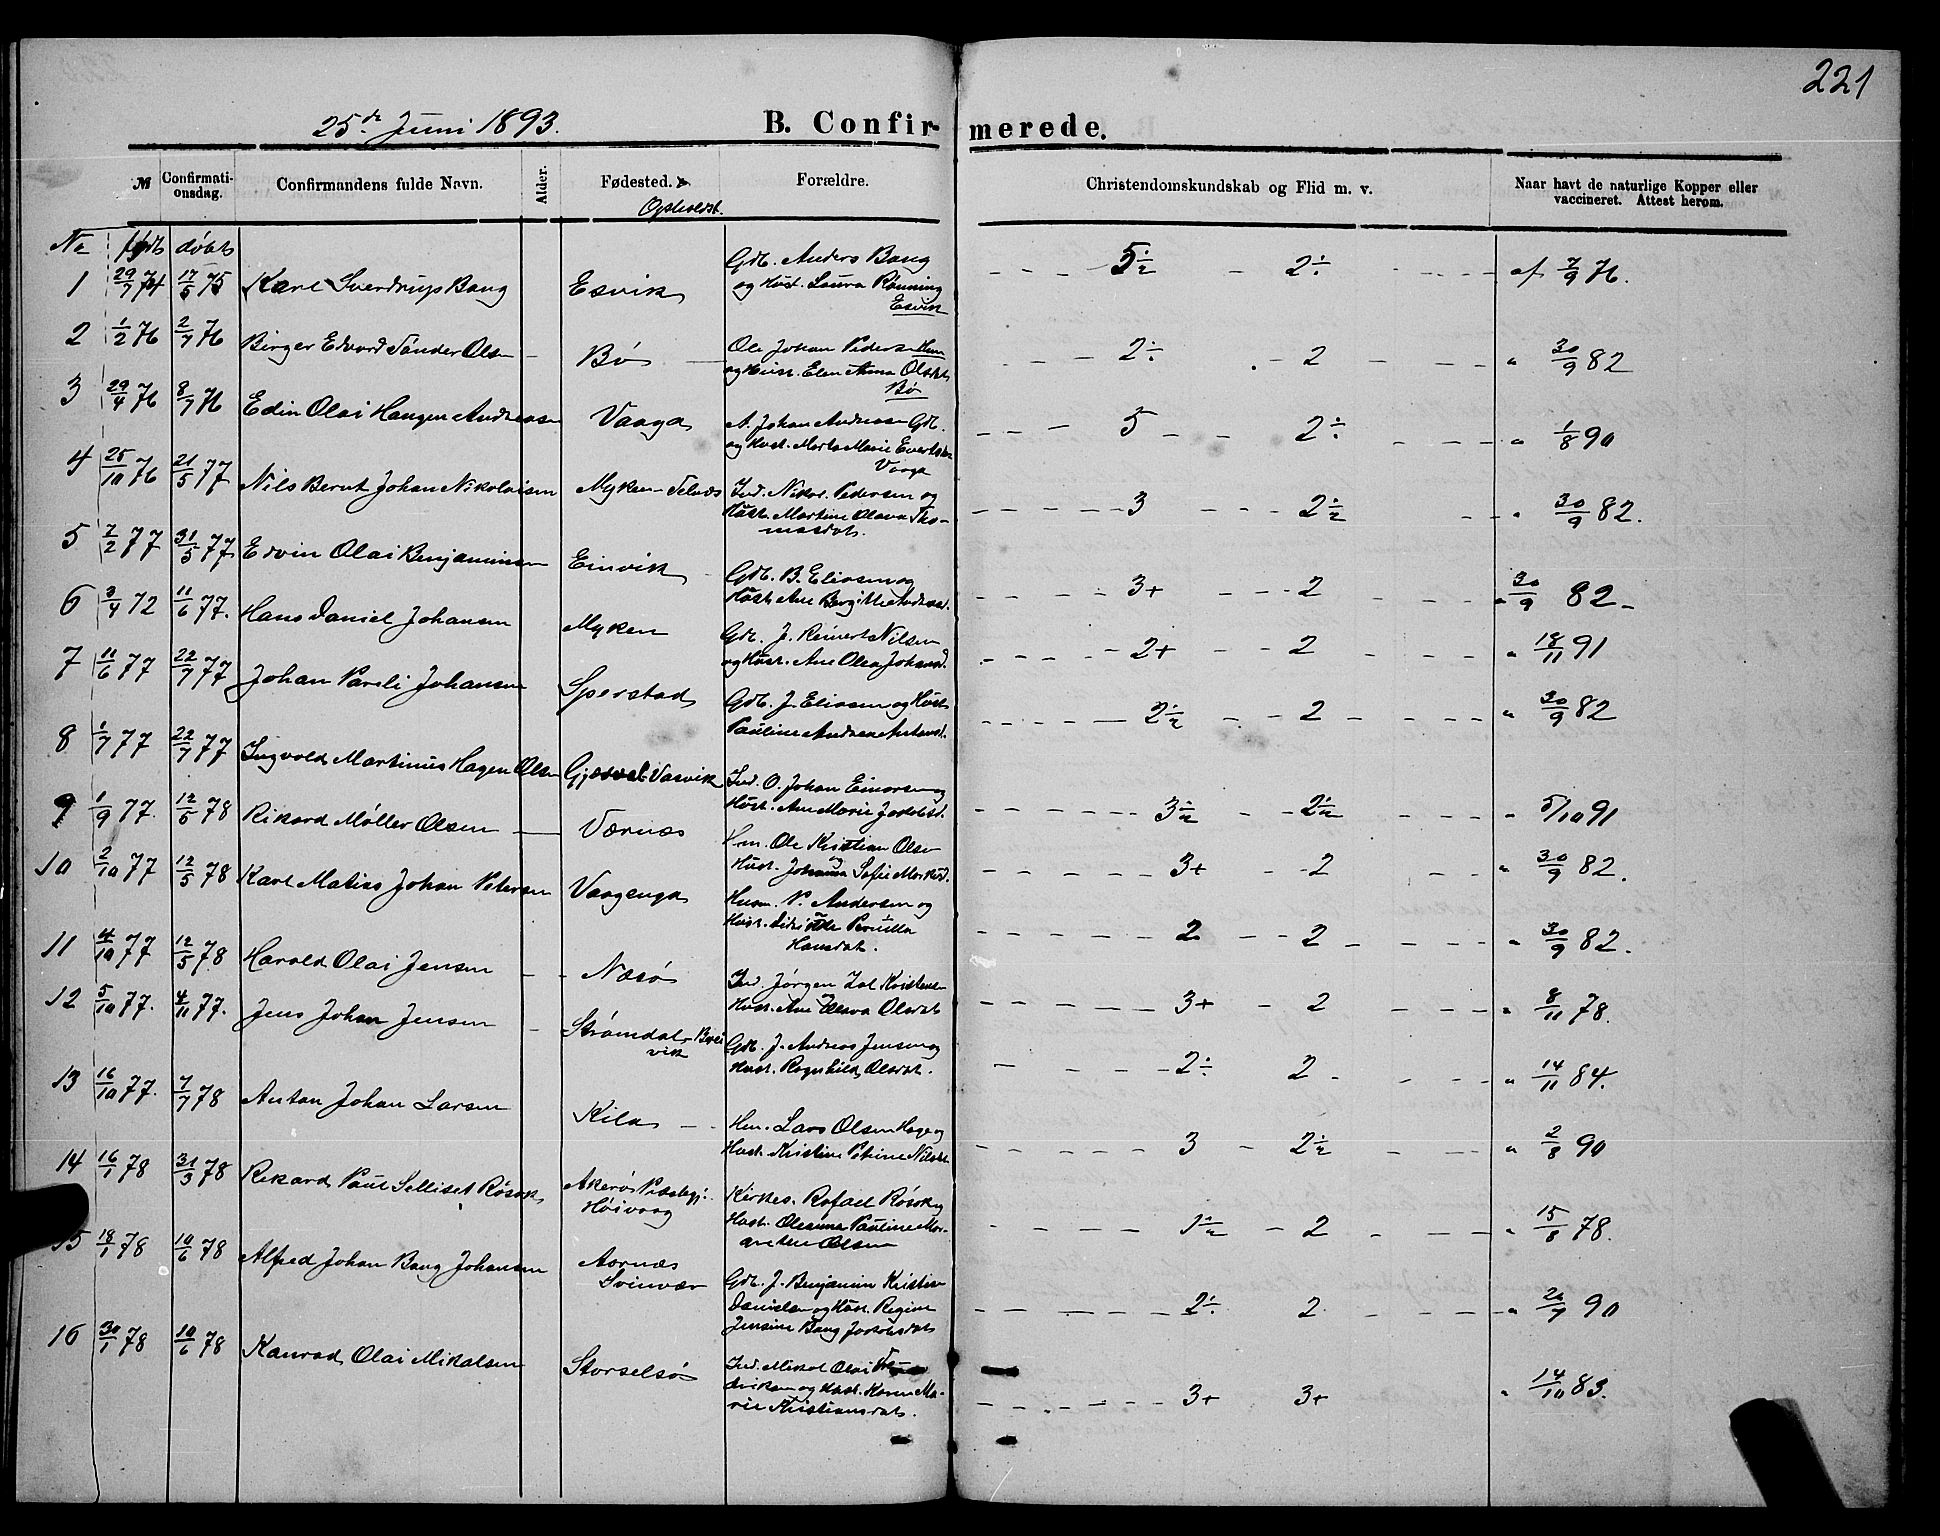 221
25de Juni 1893. B. Confirmerede.
№ Confirmati-onsdag. Confirmandens fulde Navn. Alder. Fødested. Forældre. Christendomskundskab og Flid m. v. Naar havt de naturlige Kopper eller vaccineret. Attest herom.
Opholdst.
No født døbt
1 29/7 74 17/5 75 Karl Sverdrup Bang Esvik Gdb. Anders Bang og Hust. Laura Rønning Esvik 5 1/2 2÷ af 7/9 76.
2 1/2 76 2/7 76 Birger Edvard Sander Olsen Bø Ole Johan Pedersen Hm og Hust. Elen Anna Olsdat Bø 2÷ 2 " 30/9 82
3 29/4 76 8/7 76 Edin Olai Haugen Andreasen Vaaga A. Johan Andreasen Gdb. og Hust. Marta Marie Evertsen Vaaga 5 2÷ " 1/8 90
4 25/10 76 21/5 77 Nils Bernt Johan Nikolaisen Myken-Selvær Ind. Nikol. Pedersen og Hust. Martine Olava Thomasdat. 3 2 1/2 " 30/9 82.
5 2/2 77 31/5 77 Edvin Olai Benjaminsen Einvik Gdb. B. Eliasen og Hust. Ane Bergitte Andreasd. 3+ 2 " 30/9 82
6 3/4 72 11/6 77. Hans Daniel Johansen Myken Gdb. J. Reinert Nilsen og Hust. Ane Olea Johansd. 2+ 2 " 18/11 91
7 11/6 77 22/7 77 Johan Pareli Johansen Sperstad Gdb. J. Eliasen og Hust. Pauline Andrea Antonsd. 2 1/2 2 " 30/9 82
8 1/7 77 22/7 77 Ingvald Martinus Hagen Olsen Gjersvik Vasvik Ind. O. Johan Einarsen og Hust. Ane Marie Jakobsd. 3 1/2 2 1/2 " 5/10 91
9 1/9 77. 12/5 78 Rikard Møller Olsen Værnes Hm. Ole Kristian Olsen og Hust. Johanna Sofie Morksd. 3+ 2 " 30/9 82.
10 2/10 77 12/5 78 Karl Matias Johan Petersen Vaagenga Husm. P. Andersen og Hust. Pernilla Hansdat. 2 2 " 30/9 82.
11 4/10 77 12/5 78 Harald Olai Jensen Næsø Ind. Jørgen Zal Kristensen Hust. Ane Elava Olsdat 3+ 2 " 8/11 78.
12 5/10 77. 4/11 77. Jens Johan Jensen Strømdal-Breivik Gdb. J. Andreas Jensen og Hust. Ragnhild Olsdat. 2÷ 2 " 14/11 84.
13 16/10 77. 7/7 78 Anton Johan Larsen Kila Hm. Lars Olsen Hage og Hust. Kristine Petrine Nilsdt. 3 2 1/2 " 2/8 90
14 16/1 78 31/3 78 Rikard Paul Selliset Røsok Akerø Høivaag Kirkes. Rafael Røsok og Hust. Oleanna Pauline Margrethe Olsen 1 1/2 2 " 15/8 78.
15 18/1 78 10/6 78 Alfred Johan Bang Johansen Aornæs Svinvær Gdb. J. Benjamin Kristian Danielsen og Hust. Regine Jensine Bang Jakobsdat 2÷ 2 " 26/7 90
16 30/1 78 10/6 78 Konrad Olai Mikalsen Storselsø Ind. Mikal Olai Fredriksen og Hust. Karen Marie Kristiansdat. 3+ 3+ " 14/10 83.